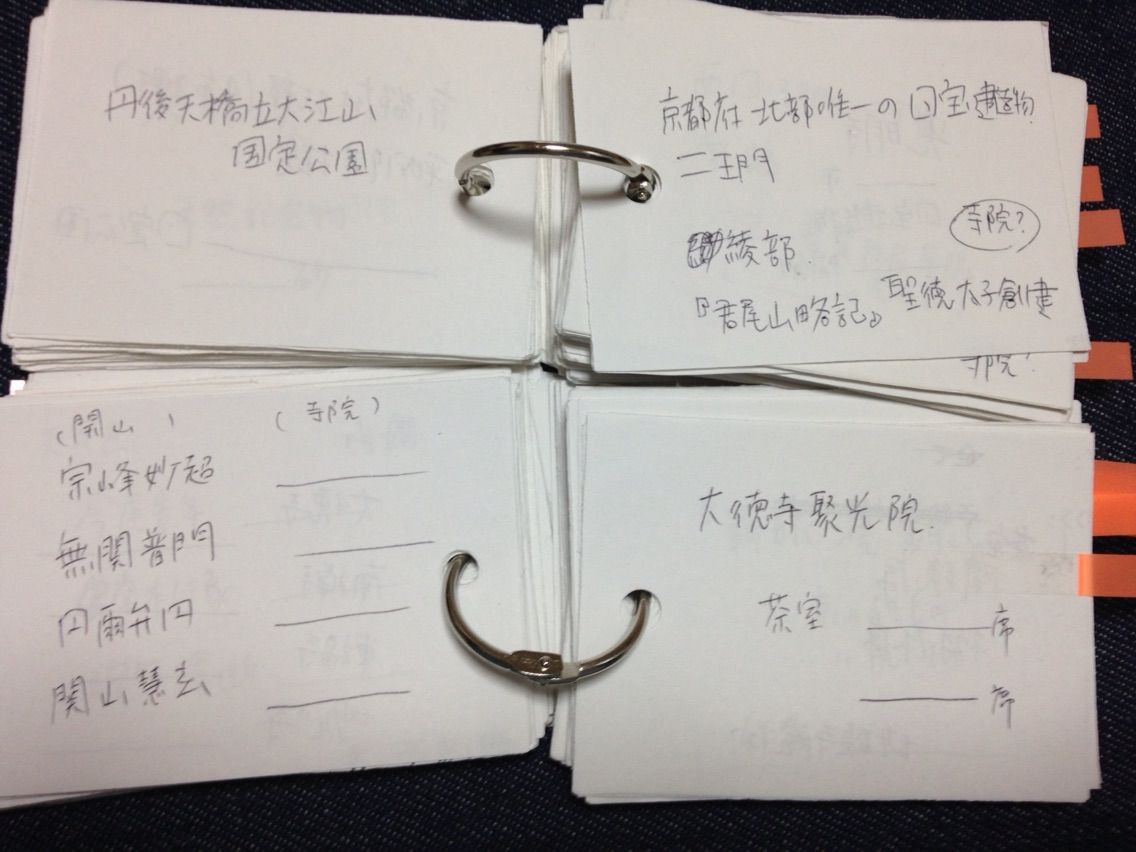 丹後天橋立大江山
国定公園
京都府北部唯一の国宝建造物
二王門
寺院?
綾部
『君尾山略記』 聖徳太子創建
寺院?
(開山) (寺院)
宗峰妙超
無関普門
円爾弁円
関山慧玄
大徳寺聚光院
茶室 席
席